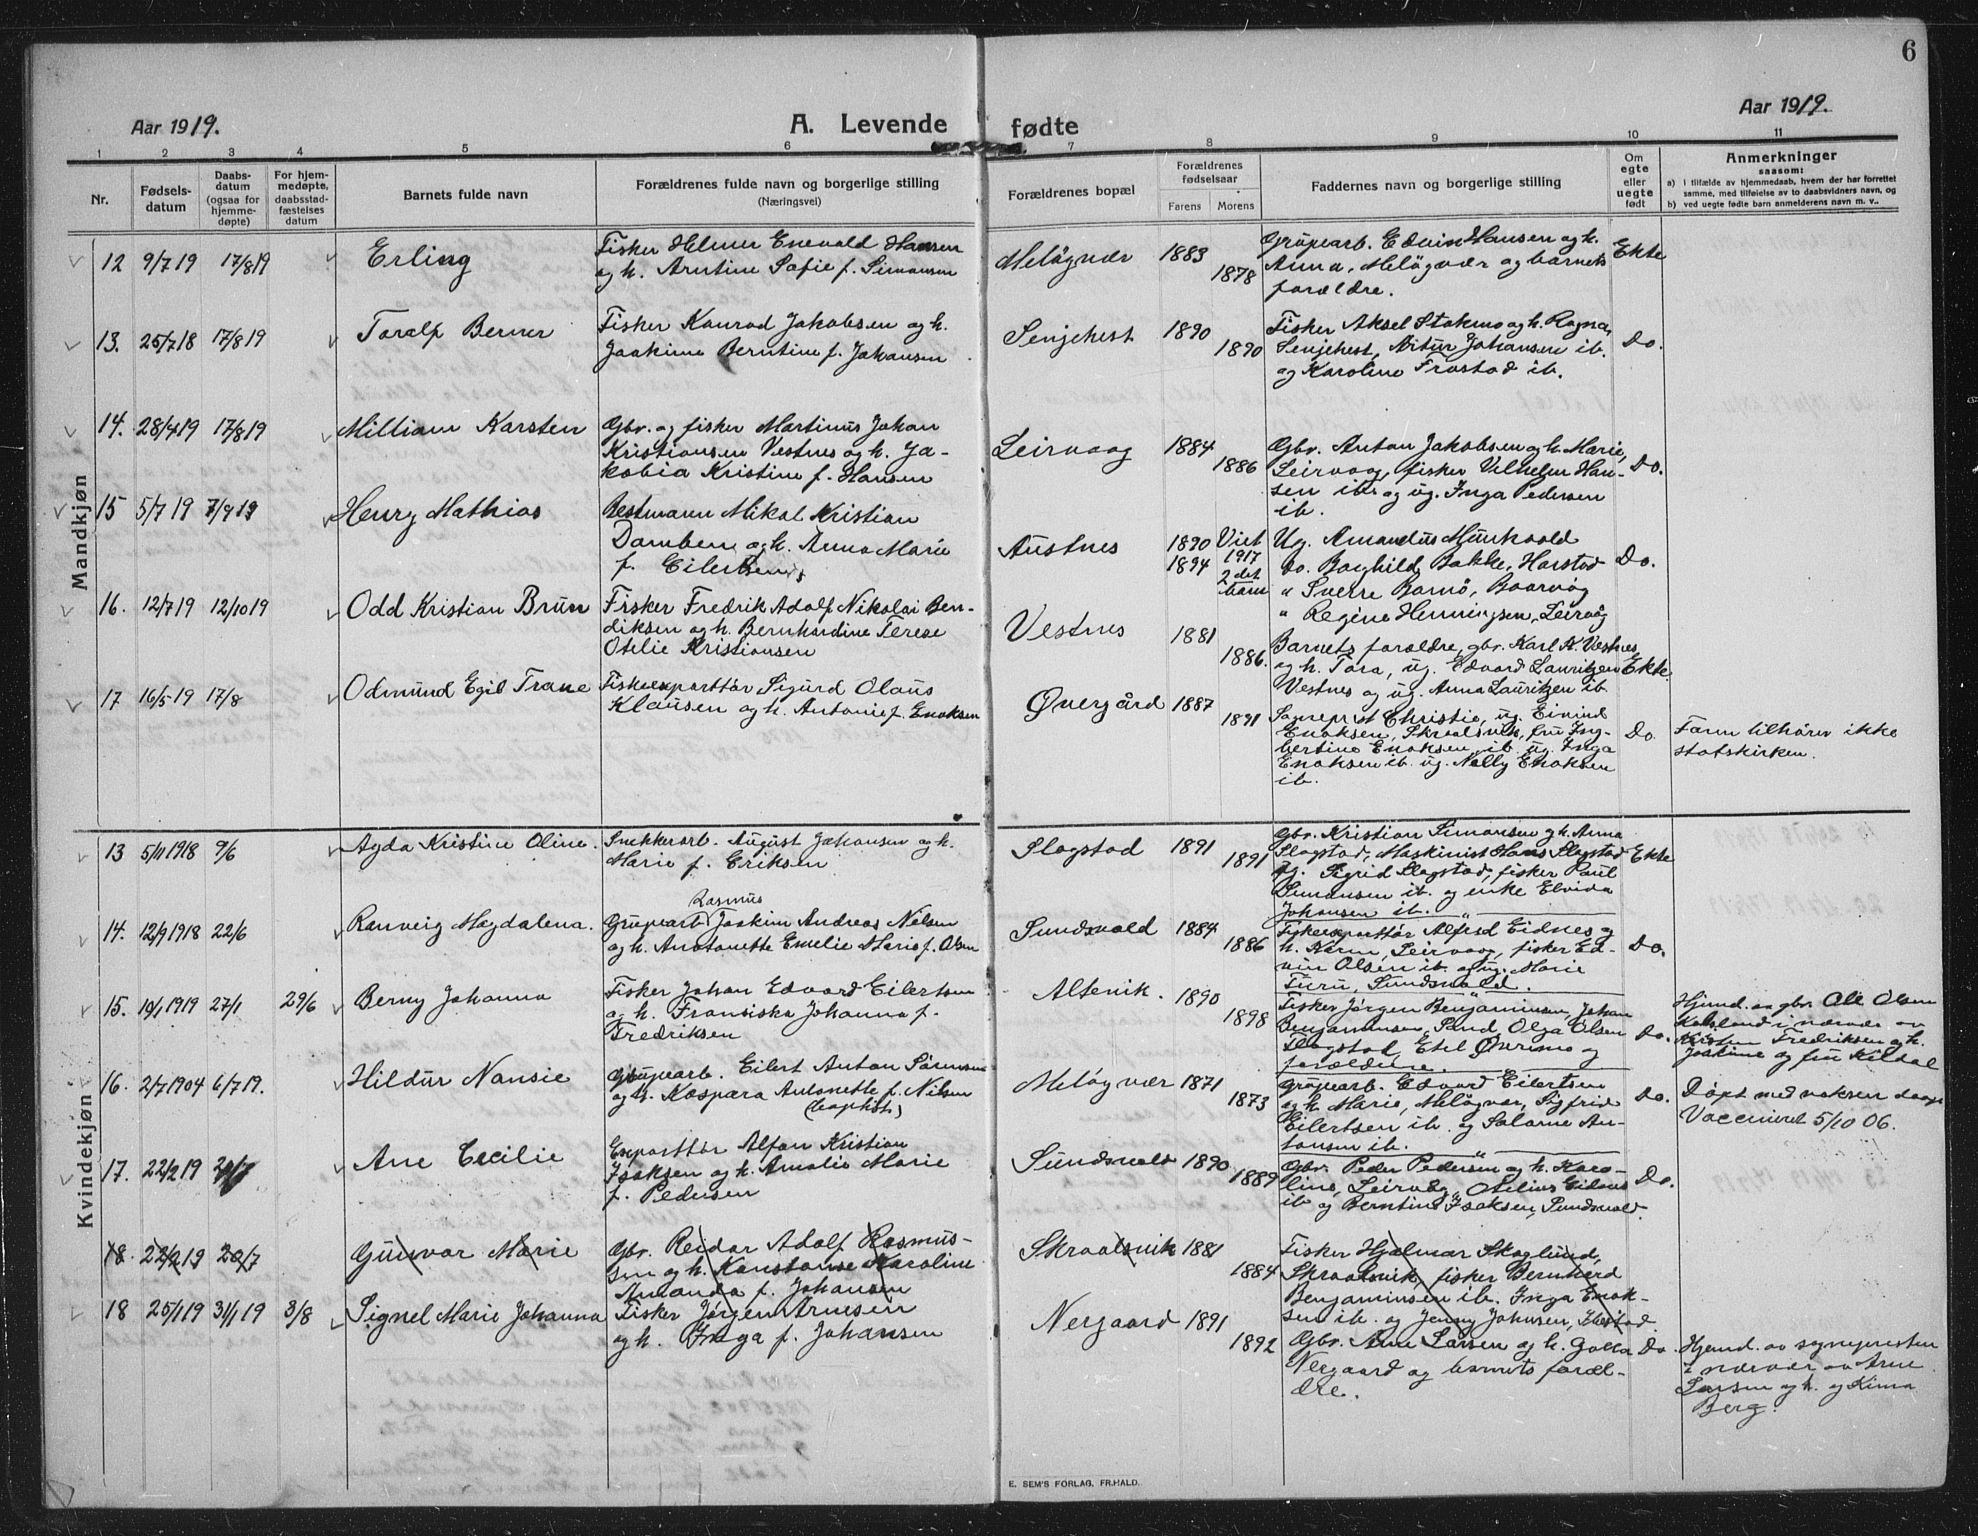 6
Aar 1919.
A. Levende fødte
Aar 1919.
1 2 3 4 5 6 7 8 9 10 11
Nr.
Fødsels-
datum
Daabs-
datum
(ogsaa for
hjemme-
døpte)
For hjem-
medøpte,
daabsstad-
fæstelses
datum
Barnets fulde navn
Forældrenes fulde navn og borgerlige stilling
(Næringsvei)
Forældrenes bopæl
Forældrenes
fødselsaar
Farens Morens
Faddernes navn og borgerlige stilling
Om
egte
eller
uegte
født
Anmerkninger
saasom:
a) i tilfælde av hjemmedaab, hvem der har forrettet
samme, med tilføielse av to daabsvidners navn, og
b) ved uegte fødte barn anmelderens navn m. v..
Mandkjøn
12 9/7 19 17/8 19 Erling
Fisker Helmer Enevald Hansen
og h. Arntine Sofie f. Simonsen
Meløyvær 1883 1878
Grubearb. Edvin Hansen og h.
Anna, Meløyvær og barnets
forældre.
Ekte
13. 25/7 18 17/8 19 Toralf Berner
Fisker Konrad Jakobsen og h.
Joakime Berntine f. Johansen
Senjehest 1890 1890
Fisker Aksel Stokmo og h. Ragna,
Senjehest, Artur Johansen ib.
og Karoline Frostad ib.
Do.
14. 28/4 19 17/8 19 William Karsten
Gbr. og fisker Martinus Johan
Kristiansen Vestnes og h. Ja-
kobia Kristine f. Hansen
Leirvaag 1884 1886
Gbr. Anton Jakobsen og h. Marie,
Leirvaag, fisker Vilhelm Han-
sen ib. og ug. Inga Pedersen
ib.
Do.
15 5/7 19 7/9 19 Henry Mathias
Bestmann Mikal Kristian
Danben og h. Anna Marie
f. Eilertsen
Austnes 1890 1894
Viet
1917
2 det
barn
Ug. Amandus Munkvold
Do. Borghild Bakke, Harstad
" Sverre Barnø, Baarvåg
" Regine Henningsen, Leirvåg
Do.
16. 12/7 19 12/10 19 Odd Kristian Brun
Fisker Fredrik Adolf Nikolai Ben-
diksen og h. Bernhardine Terese
Otelie Kristiansen
Vestnes 1881 1886.
Barnets forældre, gbr. Karl K. Vestnes
og h. Tora, ug. Edvard Lauritzen
Vestnes og ug. Anna Lauritzen ib.
Ekte
17 16/5 19 17/8 Odmund Egil Trane
Fiskeexportør Sigurd Olaus
Klausen og h. Antonie f. Enoksen
Øvergård 1887 1891
Sogneprest Christie, ug. Eivind
Enoksen, Skrolsvik, fru Ing-
bertine Enoksen ib. ug. Inga
Enoksen ib. ug. Nelly Enoksen
ib.
Do.
Faren tilhører ikke
statskirken.
Kvindekjøn
13 5/11 1918 9/6 Agda Kristine Oline.
Snekkerarb. August Johansen og h.
Marie f. Eriksen
Slagstad 1891 1891
Gbr. Kristian Simonsen og h. Anna
Slagstad, Maskinist Hans Slagstad
ug. Sigrid Slagstad, fisker Paul
Simonsen ib. og enke Elvida
Johansen ib.
Ekte
14. 12/9 1918 22/6 Ranveig Magdalena.
Rasmus
Grubearb. Joakim Andreas Nilsen
og h. Antonette Emelie Marie f. Olsen
Sundsvold 1884 1886
Fiskeexportør Alfred Eidnes og
h. Karen, Leirvaag, fisker Ed-
vin Olsen ib. og ug. Marie
Turu, Sundsvold.
Do.
15. 19/1 1919 27/1 29/6 Berny Johanna
Fisker Johan Edvard Eilertsen
og h. Fransiska Johanna f.
Fredriksen
Altevik. 1890 1898
Fisker Jørgen Benjaminsen, Johan
Benjaminsen, Sand, Olga Olsen
Slagstad, Etel Øvermo og
forældrene.
Do.
Hjemd. av gbr. Ole Olsen
i nærvær av
Kirsten Fredriksen og h.
Joakime og fru Kildal
16. 2/7 1904 6/7 19. Hildur Nansie
Grubearb. Eilert Anton Sørensen
og h. Kaspara Antonette f. Nilsen
(baptist)
Meløyvær 1871 1873
Grubearb. Edvard Eilertsen
og h. Marie, Meløyvær, Sigfrid
Eilertsen ib. og Salome An-
tonsen ib.
Do.
Døpt med voksen daap
Vaccineret 5/10 06.
17. 22/2 19 20/7 Ane Cecilie
Exportør Alfon Kristian
Isaksen og h. Amalie Marie
f. Pedersen
Sundsvold 1890 1889
Gbr. Peder Pedersen og h. Karo-
line, Leirvåg, Otelius Eidnes
ib og Berntine Isaksen, Sundsvold.
Do.
18. 22/2 19 20/7 Gunvor Marie
Gbr. Reidar Adolf Rasmus-
sen og h. Konstanse Karoline
Amanda f. Johansen
Skrolsvik 1881 1884
Fisker Hjalmar Skoglund,
Skrolsvik, fisker Bernhard
Benjaminsen ib. Inga Enok-
sen ib. og Jenny Johnsen,
18 25/1 19 31/1 19 3/8 Signel Marie Johanna
Fisker Jørgen Arnesen
og h. Inga f. Johansen
Nergaard 1891 1892
Gbr. Arne Larsen og h. Golla
Nergaard og barnets foræl-
dre.
Do
Hjemd. av sognepresten
i nærvær av Arne
Larsen og h. og Kima
Berg.
E. SEM'S FORLAG, FR.HALD.